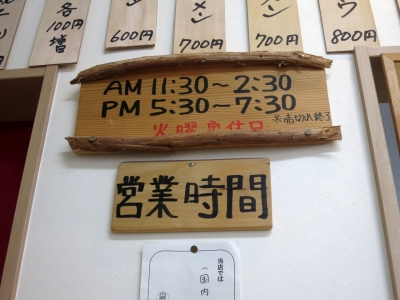 各
100円
増
600円
メン
700円
ン
700円
ウ
800円
AM 11:30～2:30
PM 5:30～7:30
※売切れ終了
火曜定休日
営業時間
当店では
国内